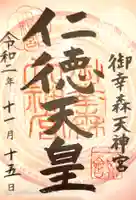 御幸森天神宮
仁徳天皇
令和二年十一月十五日